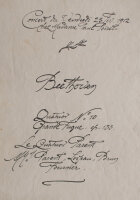 Concert du Vendredi 23 Fév. 1912
Chez Madame
Beethoven
Quatuor N° 10
Grande Fugue op. 133
Le Quatuor Parent
MM. Parent, Loiseau, Brun,
Fournier